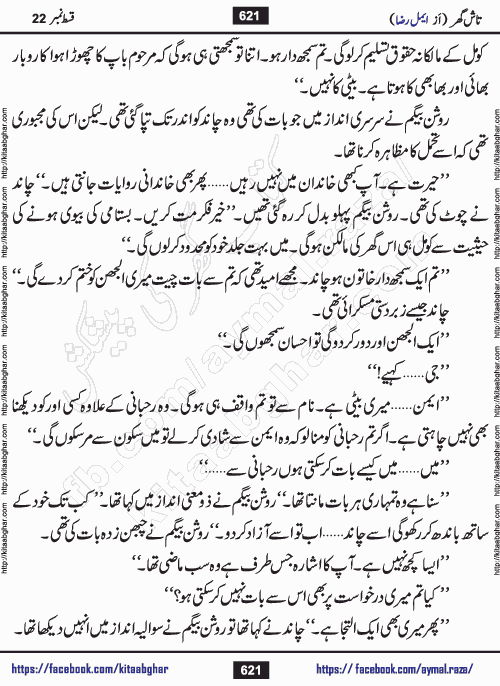 تاش گھر (از ایمل رضا) 621 قسط نمبر 22
کومل کے مالکانہ حقوق تسلیم کر لو گی۔ تم سمجھ دار ہو۔ اتنا تو سمجھتی ہی ہو گی کہ مرحوم باپ کا چھوڑا ہوا کاروبار
بھائی اور بھابھی کا ہوتا ہے۔ بیٹی کا نہیں۔‘‘
روشن بیگم نے سرسری انداز میں جو بات کی تھی وہ چاند کو اندر تک تپا گئی تھی۔ لیکن اس کی مجبوری
تھی کہ اسے تحمل کا مظاہرہ کرنا تھا۔
’’حیرت ہے۔ آپ کبھی خاندان میں نہیں رہیں...... پھر بھی خاندانی روایات جانتی ہیں۔‘‘ چاند
نے چوٹ کی تھی۔ روشن بیگم پہلو بدل کر رہ گئی تھیں۔ ’’خیر فکر مت کریں۔ بسامی کی بیوی ہونے کی
حیثیت سے کومل ہی اس گھر کی مالکن ہو گی۔ میں بہت جلد خود کو محدود کر لوں گی۔‘‘
’’تم ایک سمجھ دار خاتون ہو چاند۔ مجھے امید تھی کہ تم سے بات چیت میری الجھن کو ختم کر دے گی۔‘‘
چاند جیسے زبردستی مسکرائی تھی۔
’’ایک الجھن اور دور کر دو گی تو احسان سمجھوں گی۔‘‘
’’جی...... کہیے!‘‘
’’ایمن...... میری بیٹی ہے۔ نام سے تو تم واقف ہی ہو گی۔ وہ رحبانی کے علاوہ کسی اور کو دیکھنا
بھی نہیں چاہتی ہے۔ اگر تم رحبانی کو منا لو کہ وہ ایمن سے شادی کر لے تو میں سکون سے مر سکوں گی۔‘‘
’’میں...... میں کیسے بات کر سکتی ہوں رحبانی سے......‘‘
’’سنا ہے وہ تمہاری ہر بات مانتا تھا۔‘‘ روشن بیگم نے ذو معنی انداز میں کہا تھا۔ ’’کب تک خود کے
ساتھ باندھ کر رکھو گی اسے چاند...... اب تو اسے آزاد کر دو۔‘‘ روشن بیگم نے چبھن زدہ بات کی تھی۔
’’ایسا کچھ نہیں ہے۔ آپ کا اشارہ جس طرف ہے وہ سب ماضی تھا۔‘‘
’’کیا تم میری درخواست پر بھی اس سے بات نہیں کر سکتی ہو؟‘‘
’’پھر میری بھی ایک التجا ہے۔‘‘ چاند نے کہا تھا تو روشن بیگم نے سوالیہ انداز میں انہیں دیکھا تھا۔
https://facebook.com/kitaabghar 621 https://facebook.com/aymal.raza/
http://kitaabghar.com
http://kitaabghar.com
http://kitaabghar.com
http://kitaabghar.com
http://kitaabghar.com
http://kitaabghar.com
http://kitaabghar.com
http://kitaabghar.com